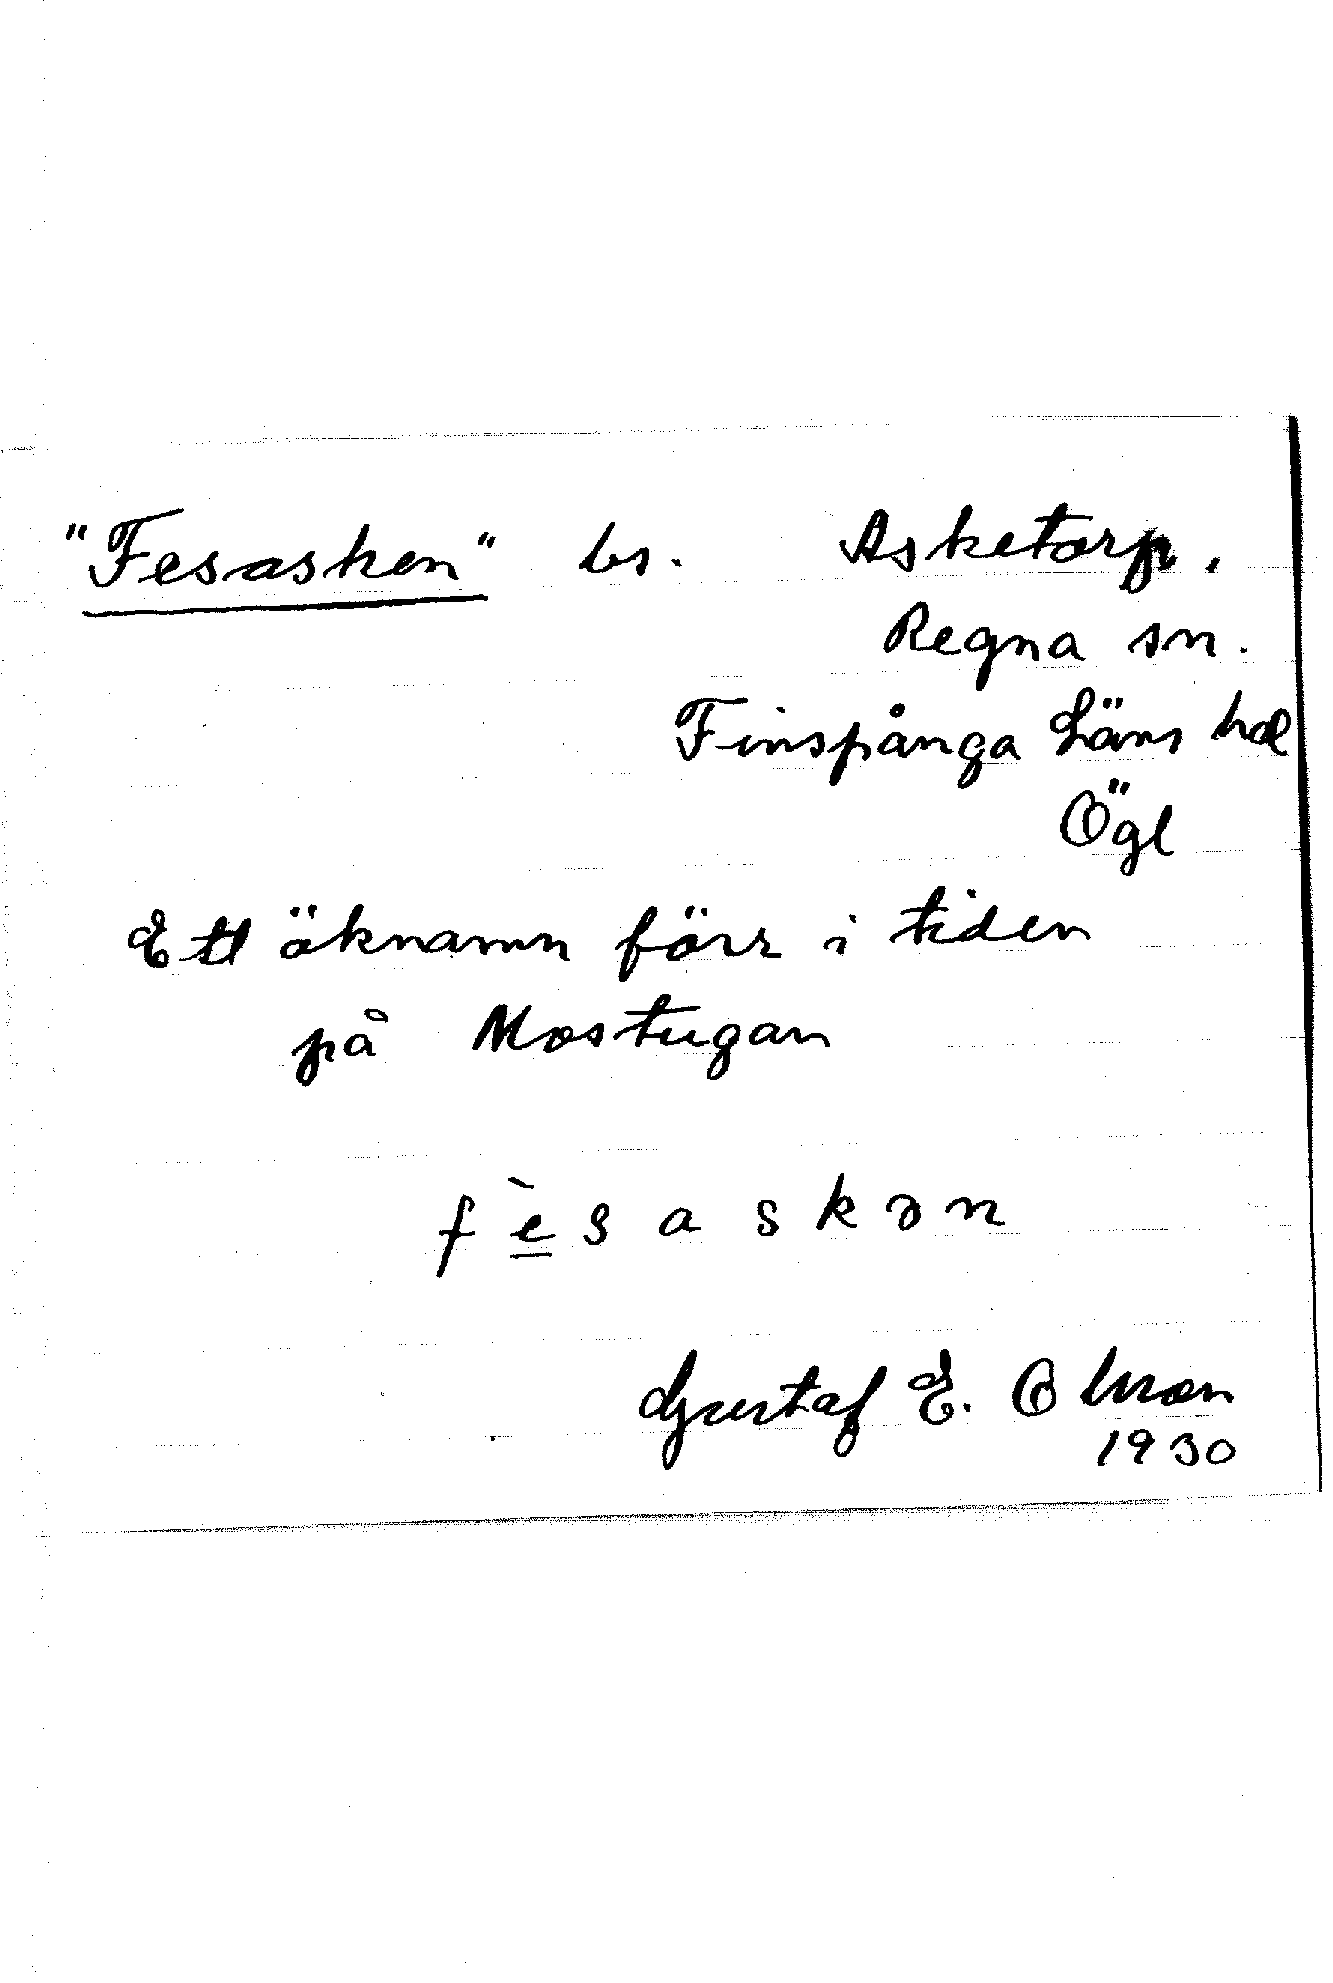 "Fesasken" bs. Asketorp,
Regna sn.
Finspånga Läns hd
Ögl
Ett öknamn förr i tiden
på Mostugan
fèsaskən
Gustaf E. Olsson
1930